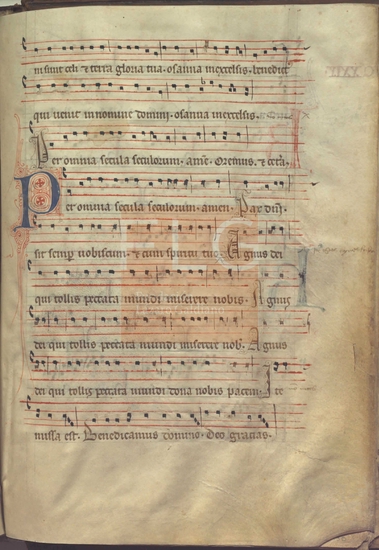 ni sunt celi et terra gloria tua. osanna inexcelsis. benedict
qui uenit innomine domini. osanna inexcelsis.
Per omnia secula seculorum. Oremus.
Per omnia secula seculorum. amen. Pax
sit semp uobiscum. et cum spiritu tuo. Agnus dei
qui tollis peccata mundi miserere nobis. Agnus
dei qui tollis peccata mundi miserere nob. Agnus
dei qui tollis peccata mundi dona nobis pacem. Ite
missa est. Benedicamus domino. Deo gracias.